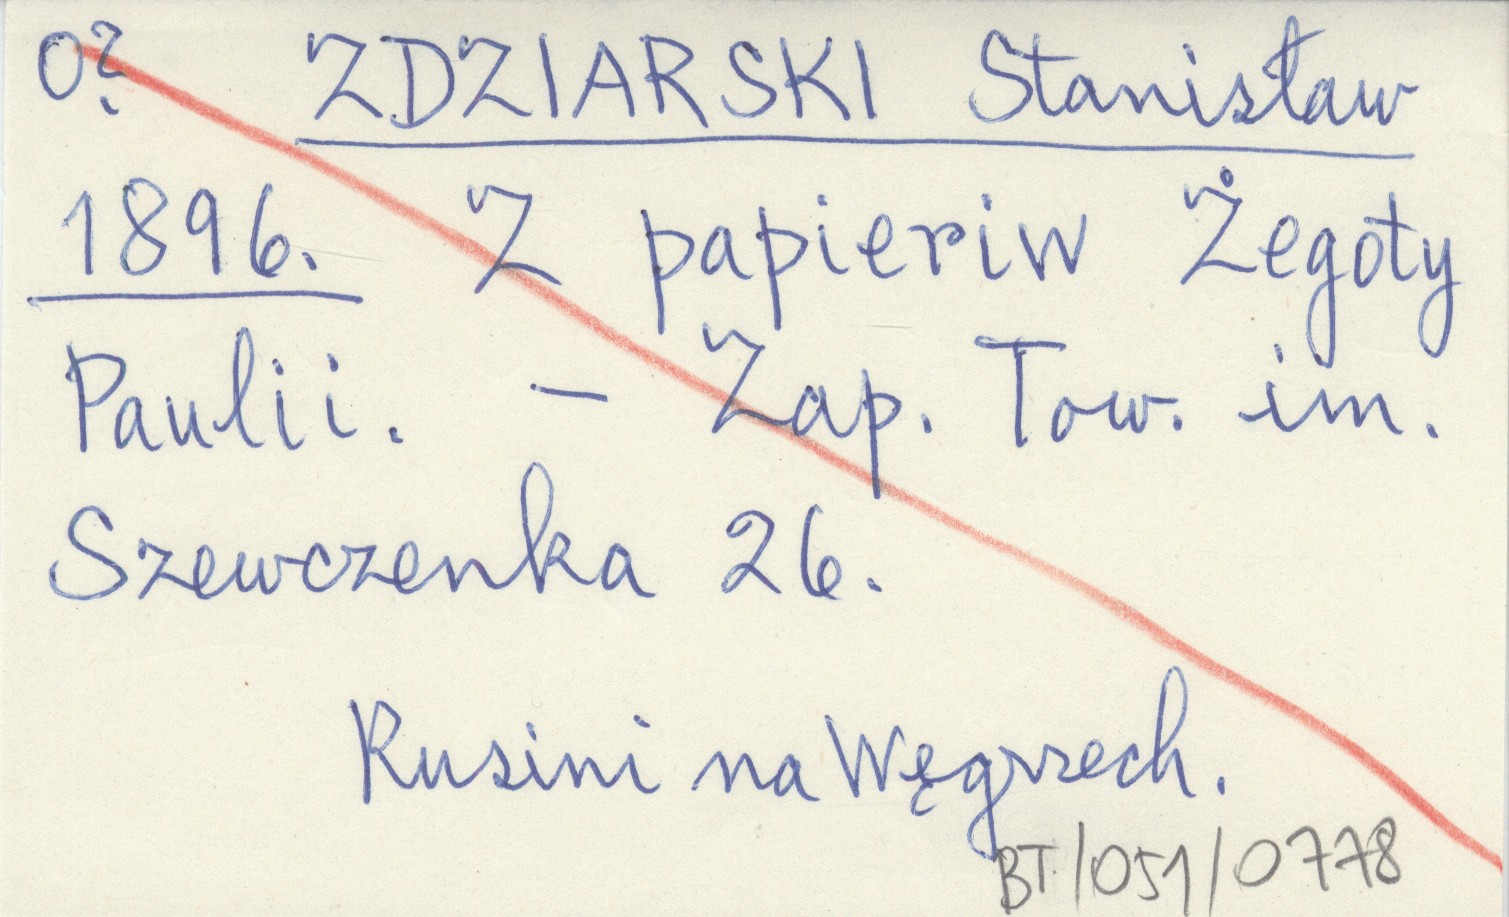 O? ZDZIARSKI Stanisław
1896. Z papieriw Żegoty
Paulii. – Zap. Tow. im.
Szewczenka 26.
Rusini na Węgrzech.
BT/051/0778